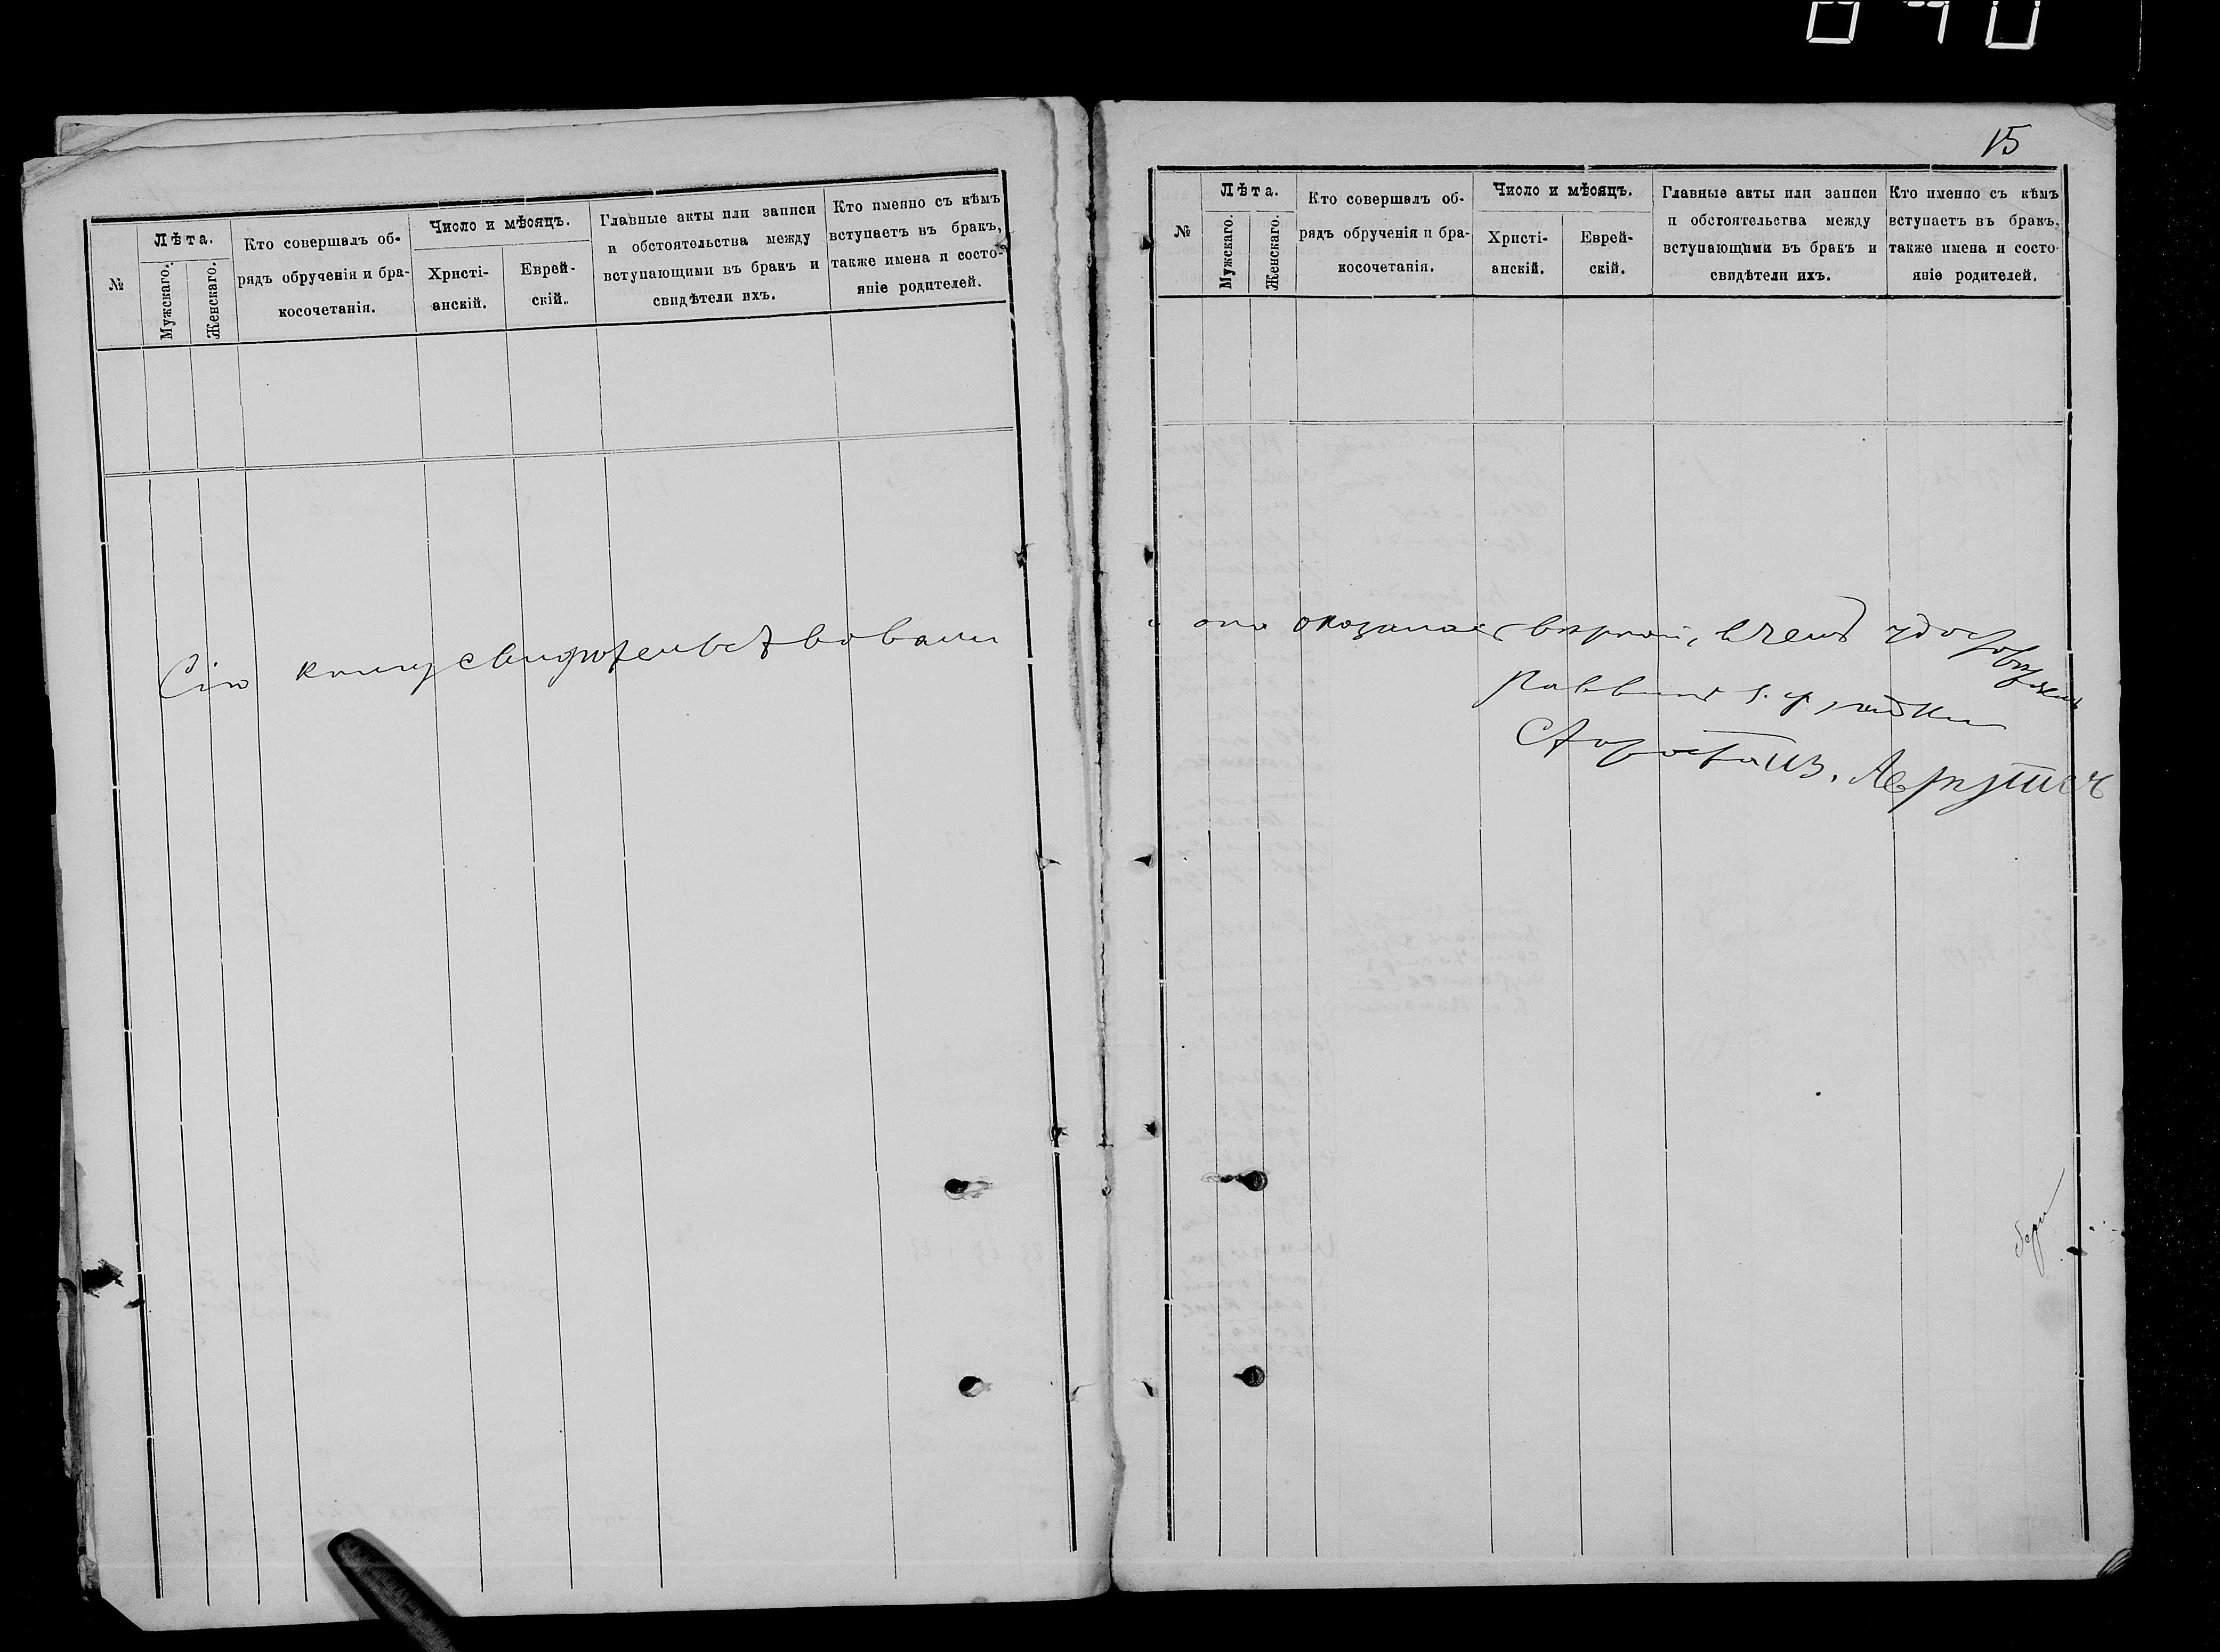 №
Лѣта.
Мужскаго.
Женскаго.
Кто совершалъ об-
рядъ обрученія и бра-
косочетанія.
Число и мѣсяцъ.
Христі-
анскій.
Еврей-
скій.
Главные акты или записи
и обстоятельства между
вступающими въ бракъ и
свидѣтели ихъ.
Кто именно съ кѣмъ
вступаетъ въ бракъ,
также имена и состо-
яніе родителей.
Сію книгу свидѣтельствовали
15
№
Лѣта.
Мужскаго.
Женскаго.
Кто совершалъ об-
рядъ обрученія и бра-
косочетанія.
Число и мѣсяцъ.
Христі-
анскій.
Еврей-
скій.
Главные акты или записи
и обстоятельства между
вступающими въ бракъ и
свидѣтели ихъ.
Кто именно съ кѣмъ
вступаетъ въ бракъ,
также имена и состо-
яніе родителей.
она оказалась вѣрной, въ чемъ
Раввинъ
Староста